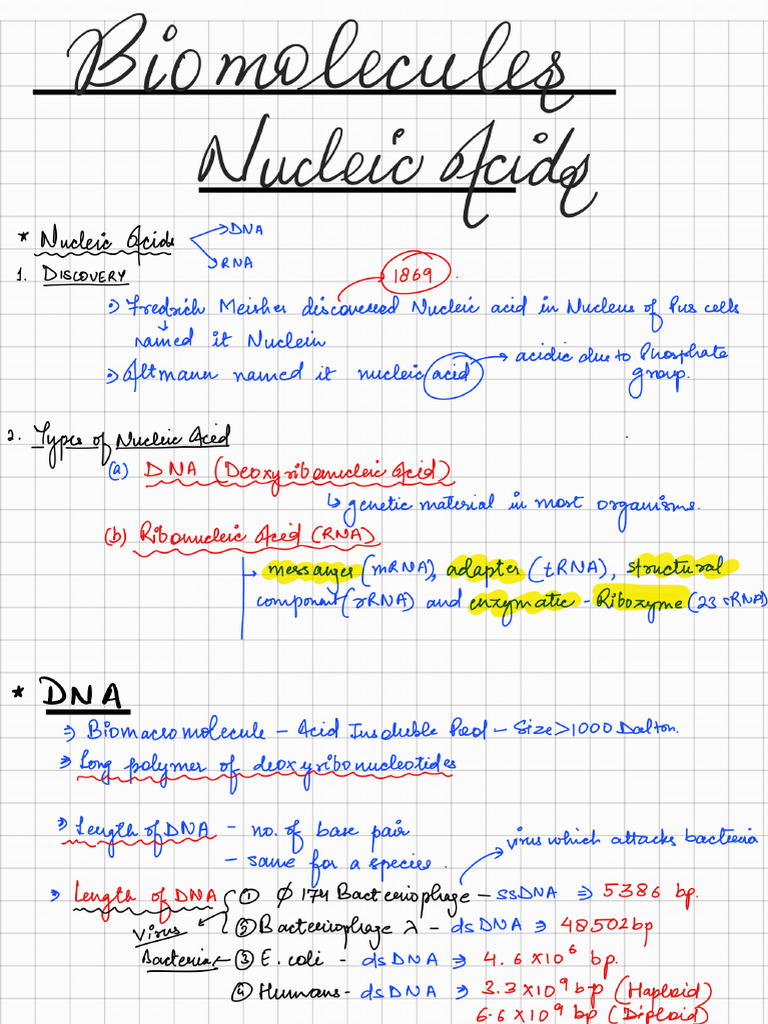 Biomolecules
Nucleic Acids
* Nucleic Acids
DNA
RNA
1. DISCOVERY
1869
⇒ Fredrich Meisher discovered Nucleic acid in Nucleus of Pus cells
named it Nuclein
⇒ Altmann named it nucleic acid → acidic due to Phosphate
group.
2. Types of Nucleic Acid
(a) DNA (Deoxyribonucleic Acid)
↳ genetic material in most organisms.
(b) Ribonucleic Acid (RNA)
→ messanger (mRNA), adapter (tRNA), structural
component (rRNA) and enzymatic - Ribozyme (23 rRNA)
* DNA
⇒ Biomacromolecule - Acid Insoluble Pool - Size > 1000 Dalton.
⇒ Long polymer of deoxyribonucleotides
⇒ Length of DNA - no. of base pair
- same for a species.
virus which attacks bacteria
⇒ Length of DNA ① φ 174 Bacteriophage - ssDNA ⇒ 5386 bp.
Virus ② Bacteriophage λ - dsDNA ⇒ 48502bp
Bacteria ③ E. coli - dsDNA ⇒ 4.6 × 10⁶ bp.
④ Humans - dsDNA ⇒ 3.3 × 10⁹ bp (Haploid)
6.6 × 10⁹ bp (Diploid)